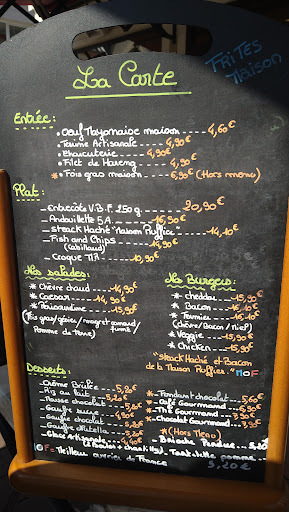 La Carte
FRITES
Maison
Entrée:
• Oeuf Mayonnaise maison ---- 4,60€
• Terrine Artisanale ---- 4,90€
• Charcuterie ---- 4,90€
• Filet de Hareng ---- 4,90€
* Foies gras maison ---- 6,90€ (Hors menu)
Plat:
- Entrecôte V.B.F. 250g ---- 20,90€
- Andouillette 5A ---- 16,90€
- Steack Haché Maison Puffier ---- 14,10€
- Fish and Chips ---- 15,90€
(Cabillaud)
- Croque ---- 10,90€
Les salades:
* Chèvre chaud ---- 14,90€
* Caesar ---- 14,90€
* Périgourdine ---- 15,90€
(Fois gras/gésier/magret canard/fumé
Pomme de Terre)
Les Burgers:
* cheddar ---- 15,90€
* Bacon ---- 16,10€
* Fermier ---- 16,10€
(chèvre/Bacon/Miel)
* Veggie ---- 15,90€
* Chicken ---- 15,90€
"Steack Haché et Bacon
de la Maison Puffier" MOF
Desserts:
- Crème Brûlée
- Riz au lait
- Mousse chocolat
- Gaufre sucre
- Gaufre chocolat
- Gaufre Nutella
- Glace Artisanale
* Fondant chocolat ---- 5,60€
* Café Gourmand
* Thé Gourmand
* Chocolat Gourmand
* (Hors Menu)
- Brioche Perdue
MOF = Meilleur ouvrier de France
- Tartelette pomme
5,20€